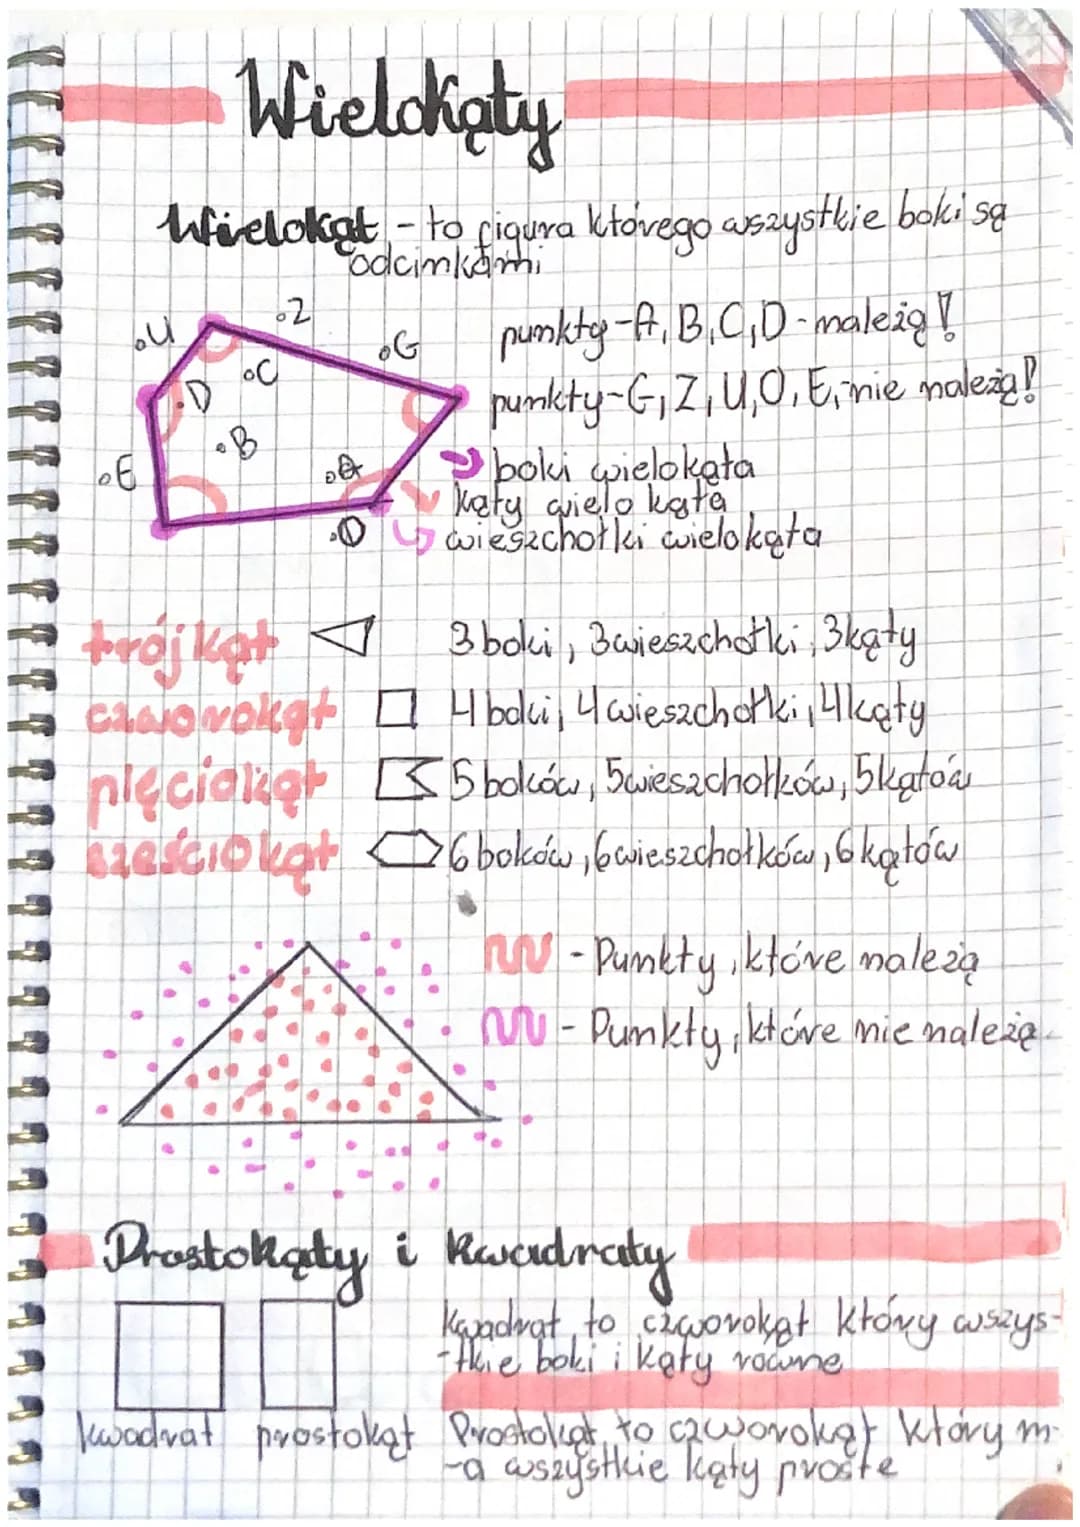 Wielokąty
Wielokąt - to figura którego wszystkie boki są
odcinkami
.U
.Z
.G
.C
.D
.B
.E
.A
.O
punkty-A, B, C, D - należą!
punkty-G, Z, U, O, E, nie należą!
boki wielokąta
kąty wielo kąta
wieszchołki wielokąta
trójkąt 3 boki, 3 wieszchołki, 3 kąty
czworokąt 4 boki, 4 wieszchołki, 4 kąty
pięciokąt 5 boków, 5 wieszchołków, 5 kątów
sześciokąt 6 boków, 6 wieszchołków, 6 kątów
- Punkty, które należą
- Punkty, które nie należą.
Prostokąty i kwadraty
Kwadrat to czworokąt który wszys-
-tkie boki i kąty równe
kwadrat prostokąt
Prostokąt to czworokąt który m-
-a wszystkie kąty proste